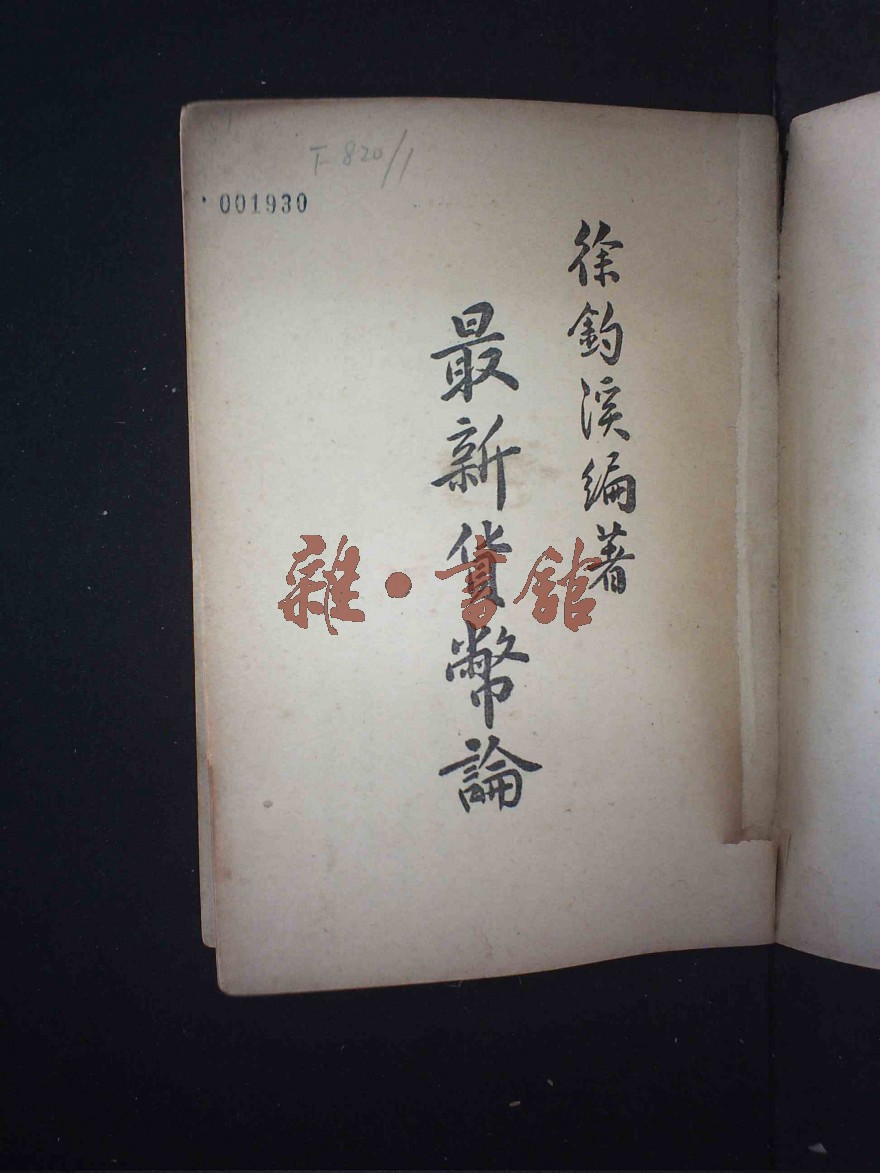 F 820/1
001930
徐鈞溪編著
最新貨幣論
雜·書館